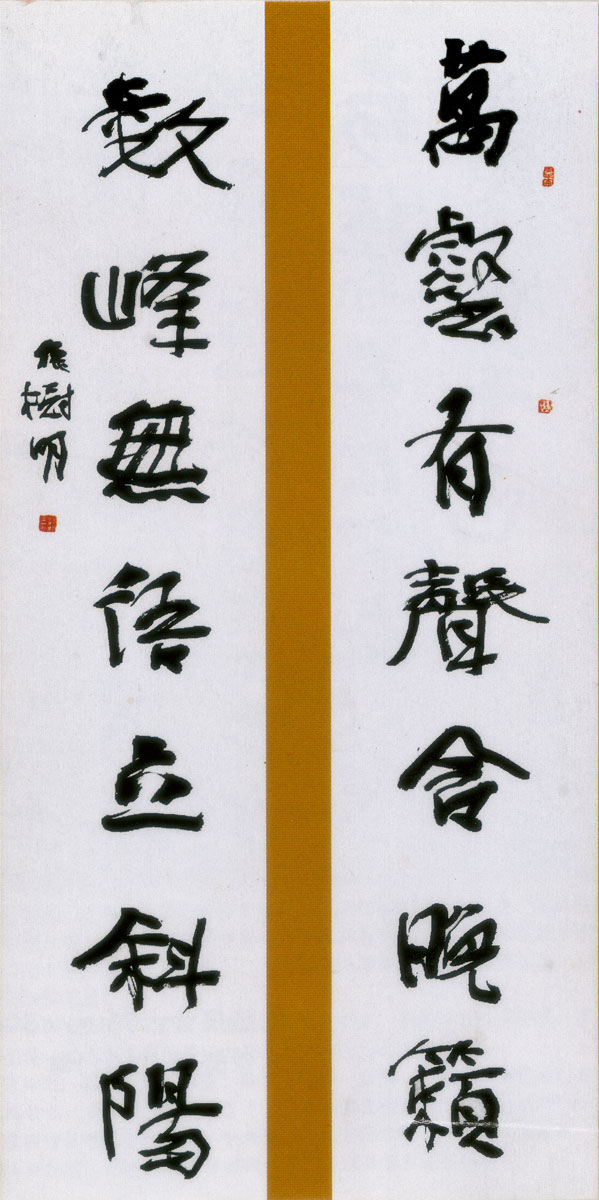 萬壑有聲含晚籟
數峰無語立斜陽
樹明